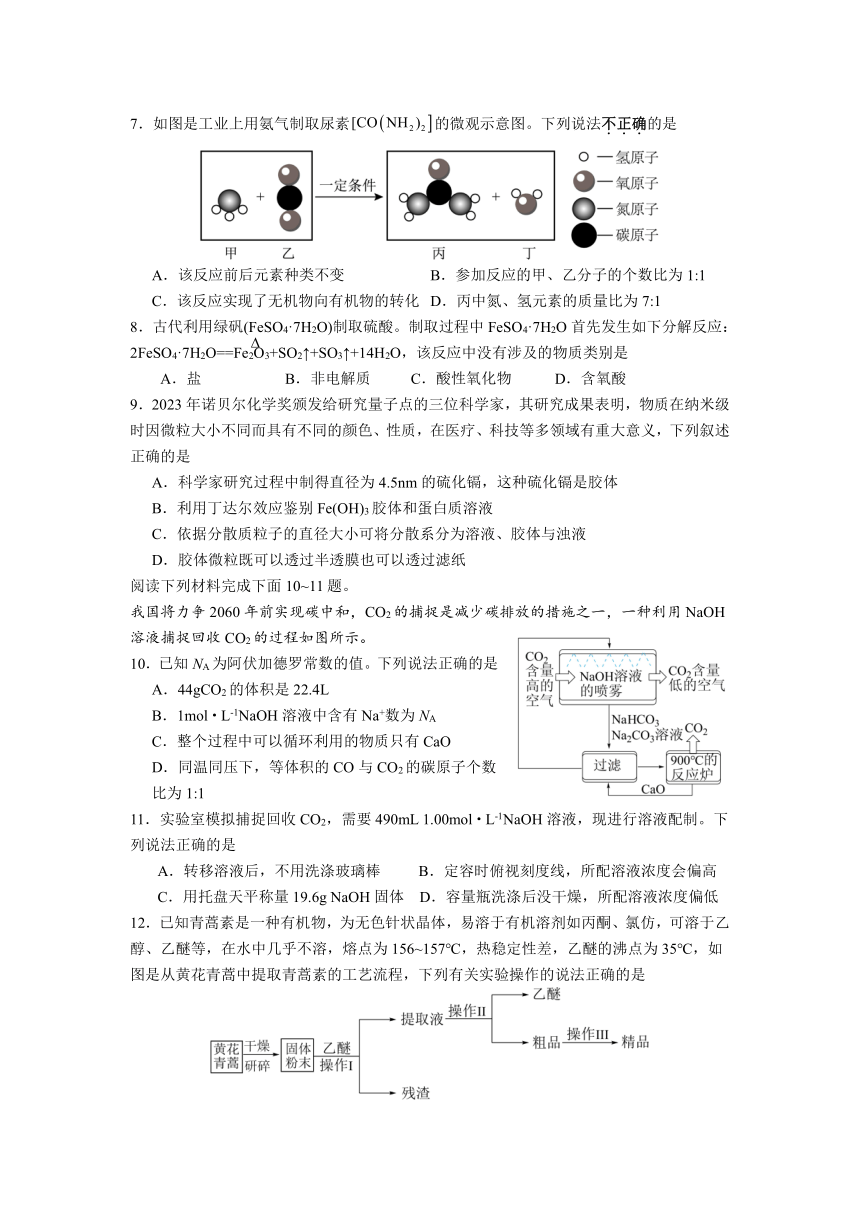 7．如图是工业上用氨气制取尿素[CO(NH₂)₂]的微观示意图。下列说法不正确的是
一定条件
+
+
甲 乙 丙 丁
—氢原子
—氧原子
—氮原子
—碳原子
A．该反应前后元素种类不变 B．参加反应的甲、乙分子的个数比为 1:1
C．该反应实现了无机物向有机物的转化 D．丙中氮、氢元素的质量比为 7:1
8．古代利用绿矾(FeSO₄·7H₂O)制取硫酸。制取过程中 FeSO₄·7H₂O 首先发生如下分解反应：
Δ
2FeSO₄·7H₂O==Fe₂O₃+SO₂↑+SO₃↑+14H₂O，该反应中没有涉及的物质类别是
A．盐 B．非电解质 C．酸性氧化物 D．含氧酸
9．2023 年诺贝尔化学奖颁发给研究量子点的三位科学家，其研究成果表明，物质在纳米级
时因微粒大小不同而具有不同的颜色、性质，在医疗、科技等多领域有重大意义，下列叙述
正确的是
A．科学家研究过程中制得直径为 4.5nm 的硫化镉，这种硫化镉是胶体
B．利用丁达尔效应鉴别 Fe(OH)₃ 胶体和蛋白质溶液
C．依据分散质粒子的直径大小可将分散系分为溶液、胶体与浊液
D．胶体微粒既可以透过半透膜也可以透过滤纸
阅读下列材料完成下面 10~11 题。
我国将力争 2060 年前实现碳中和，CO₂ 的捕捉是减少碳排放的措施之一，一种利用 NaOH
溶液捕捉回收 CO₂ 的过程如图所示。
10．已知 Nᴀ 为阿伏加德罗常数的值。下列说法正确的是
A．44gCO₂ 的体积是 22.4L
B．1mol·L⁻¹NaOH 溶液中含有 Na⁺数为 Nᴀ
C．整个过程中可以循环利用的物质只有 CaO
D．同温同压下，等体积的 CO 与 CO₂ 的碳原子个数
比为 1:1
CO₂
含量
高的
空气
NaOH溶液
的喷雾
CO₂含量
低的空气
NaHCO₃
Na₂CO₃溶液
CO₂
过滤
900℃的
反应炉
CaO
11．实验室模拟捕捉回收 CO₂，需要 490mL 1.00mol·L⁻¹NaOH 溶液，现进行溶液配制。下
列说法正确的是
A．转移溶液后，不用洗涤玻璃棒 B．定容时俯视刻度线，所配溶液浓度会偏高
C．用托盘天平称量 19.6g NaOH 固体 D．容量瓶洗涤后没干燥，所配溶液浓度偏低
12．已知青蒿素是一种有机物，为无色针状晶体，易溶于有机溶剂如丙酮、氯仿，可溶于乙
醇、乙醚等，在水中几乎不溶，熔点为 156~157℃，热稳定性差，乙醚的沸点为 35℃，如
图是从黄花青蒿中提取青蒿素的工艺流程，下列有关实验操作的说法正确的是
黄花
青蒿
干燥
研碎
固体
粉末
乙醚
操作Ⅰ
提取液
操作Ⅱ
乙醚
粗品
操作Ⅲ
精品
残渣